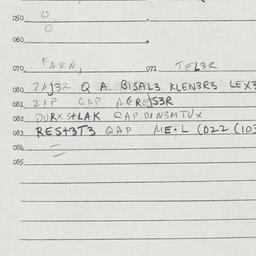 050 O
O
060
070 FARN, 071 TEL3R
080 ZAJ3R Q A BISAL3 KLEN3R3 LEX3
081 ZIP GAP AGREJS3R
082 DURX STLAK GAP DINSMTUX
083 REST3T3 GAP ME·L (D22 (103
084 =
085